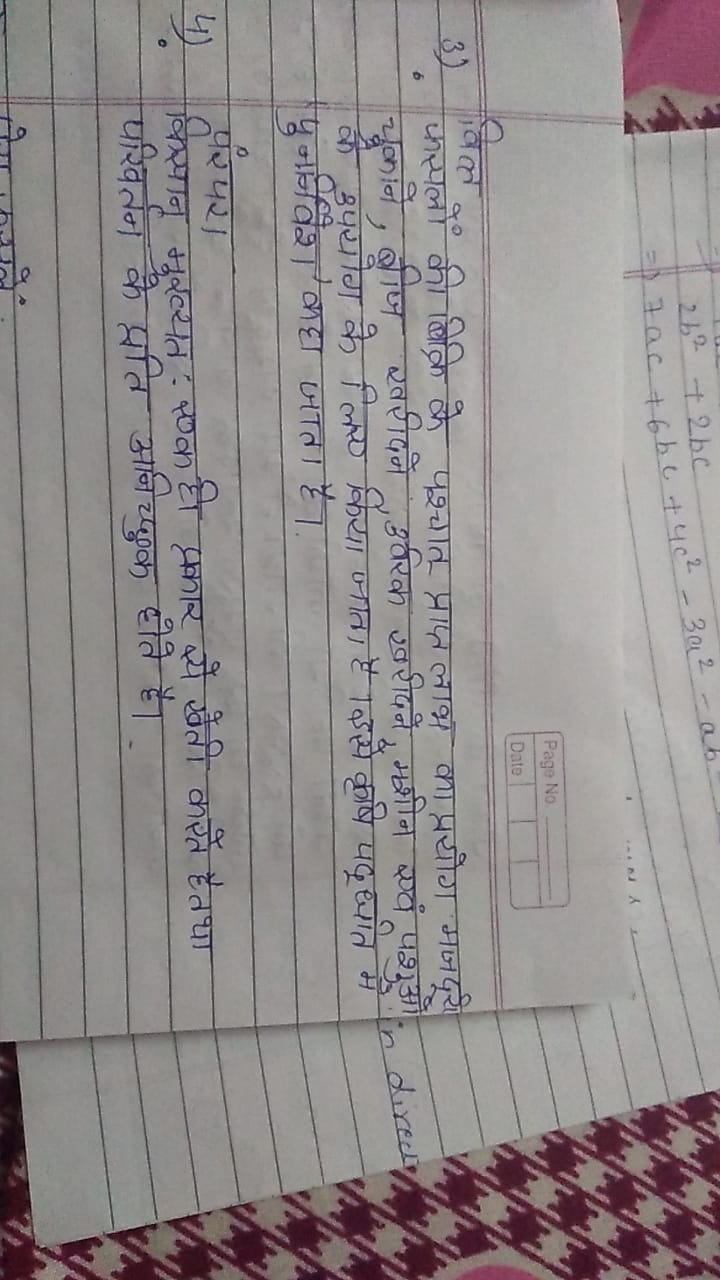 2b² + 2bc
=> 7ac + 6bc + 4c² - 3a² - ab
Page No.
Date
3) वित्त
फसलों की बिक्रि के पश्चात् प्राप्त लाभ का प्रयोग मजदूरी
चुकाने, बीज खरीदने, उर्वरक खरीदने, मशीन एवं पशुओं
के उपयोग के लिए किया जाता है। इसे कृषि पद्धति में
पुनर्निवेश कहा जाता है।
n direct
4) पंरपरा
किसान मुख्यत: एक ही प्रकार से खेती करते है तथा
परिवर्तन के प्रति अनिच्छुक होते है।